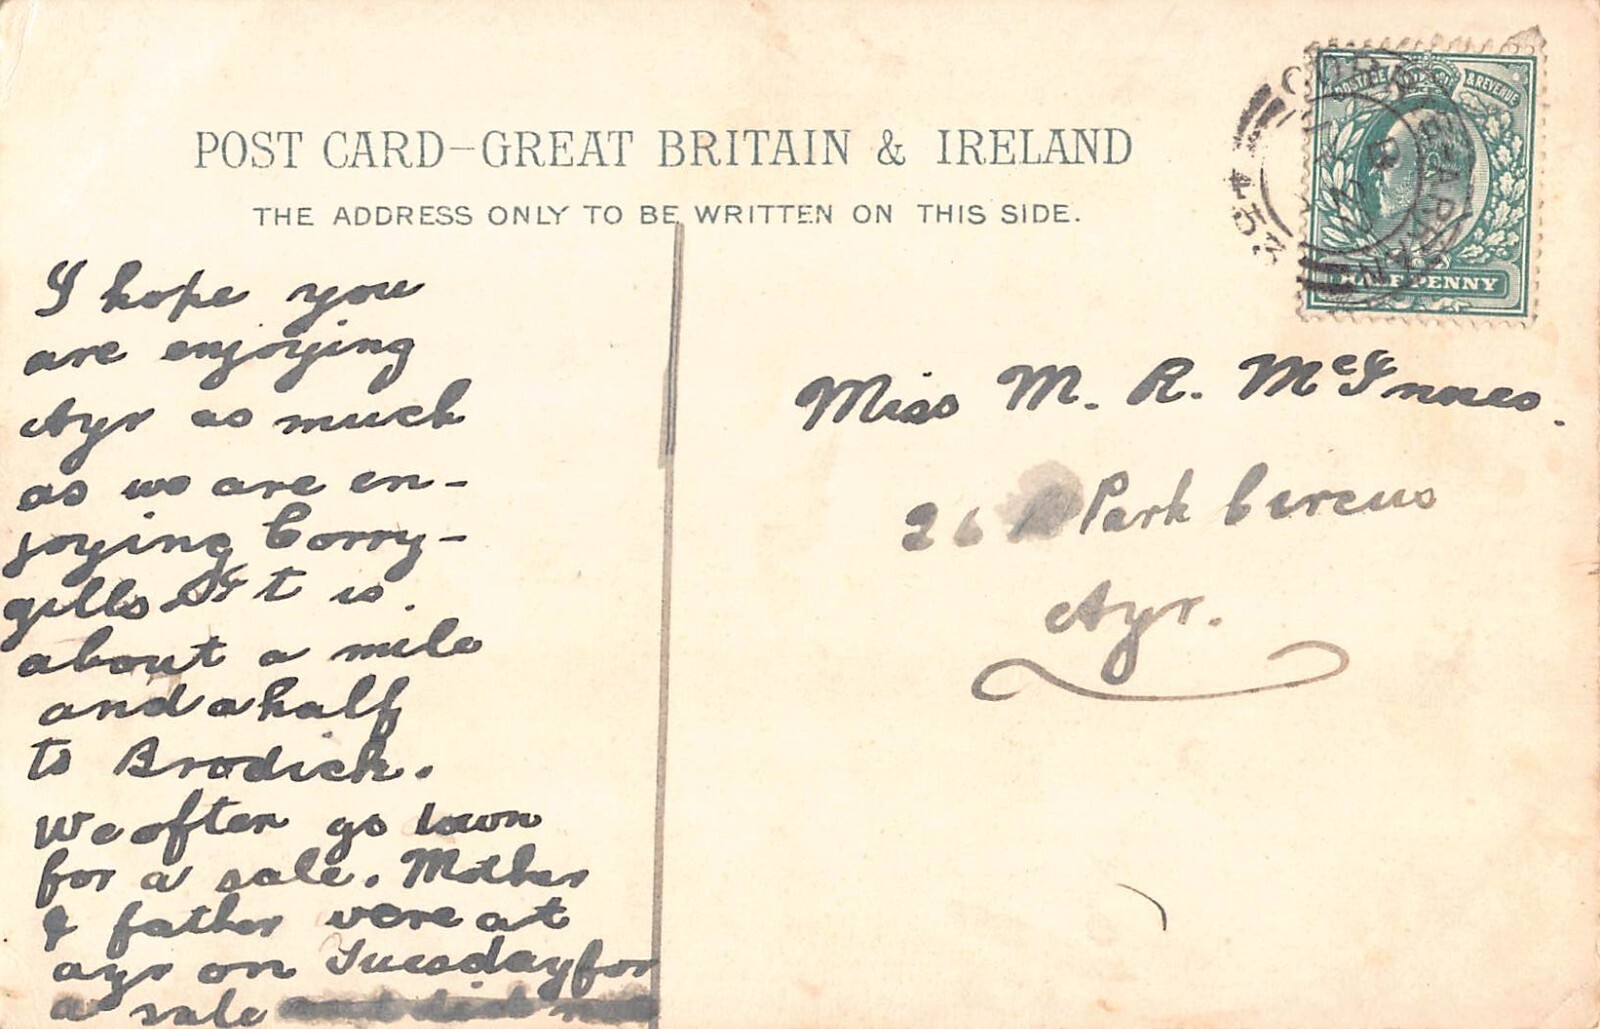 POST CARD-GREAT BRITAIN & IRELAND
THE ADDRESS ONLY TO BE WRITTEN ON THIS SIDE.
POSTAGE & REVENUE
HALFPENNY
I hope you
are enjoying
Ayr as much
as we are en-
joying Corry-
gills It is.
about a mile
and a half
to Brodick.
We often go down
for a sale. Mother
& father were at
ayr on Tuesday for
a sale
Miss M. R. McInnes.
26 Park Circus
Ayr.